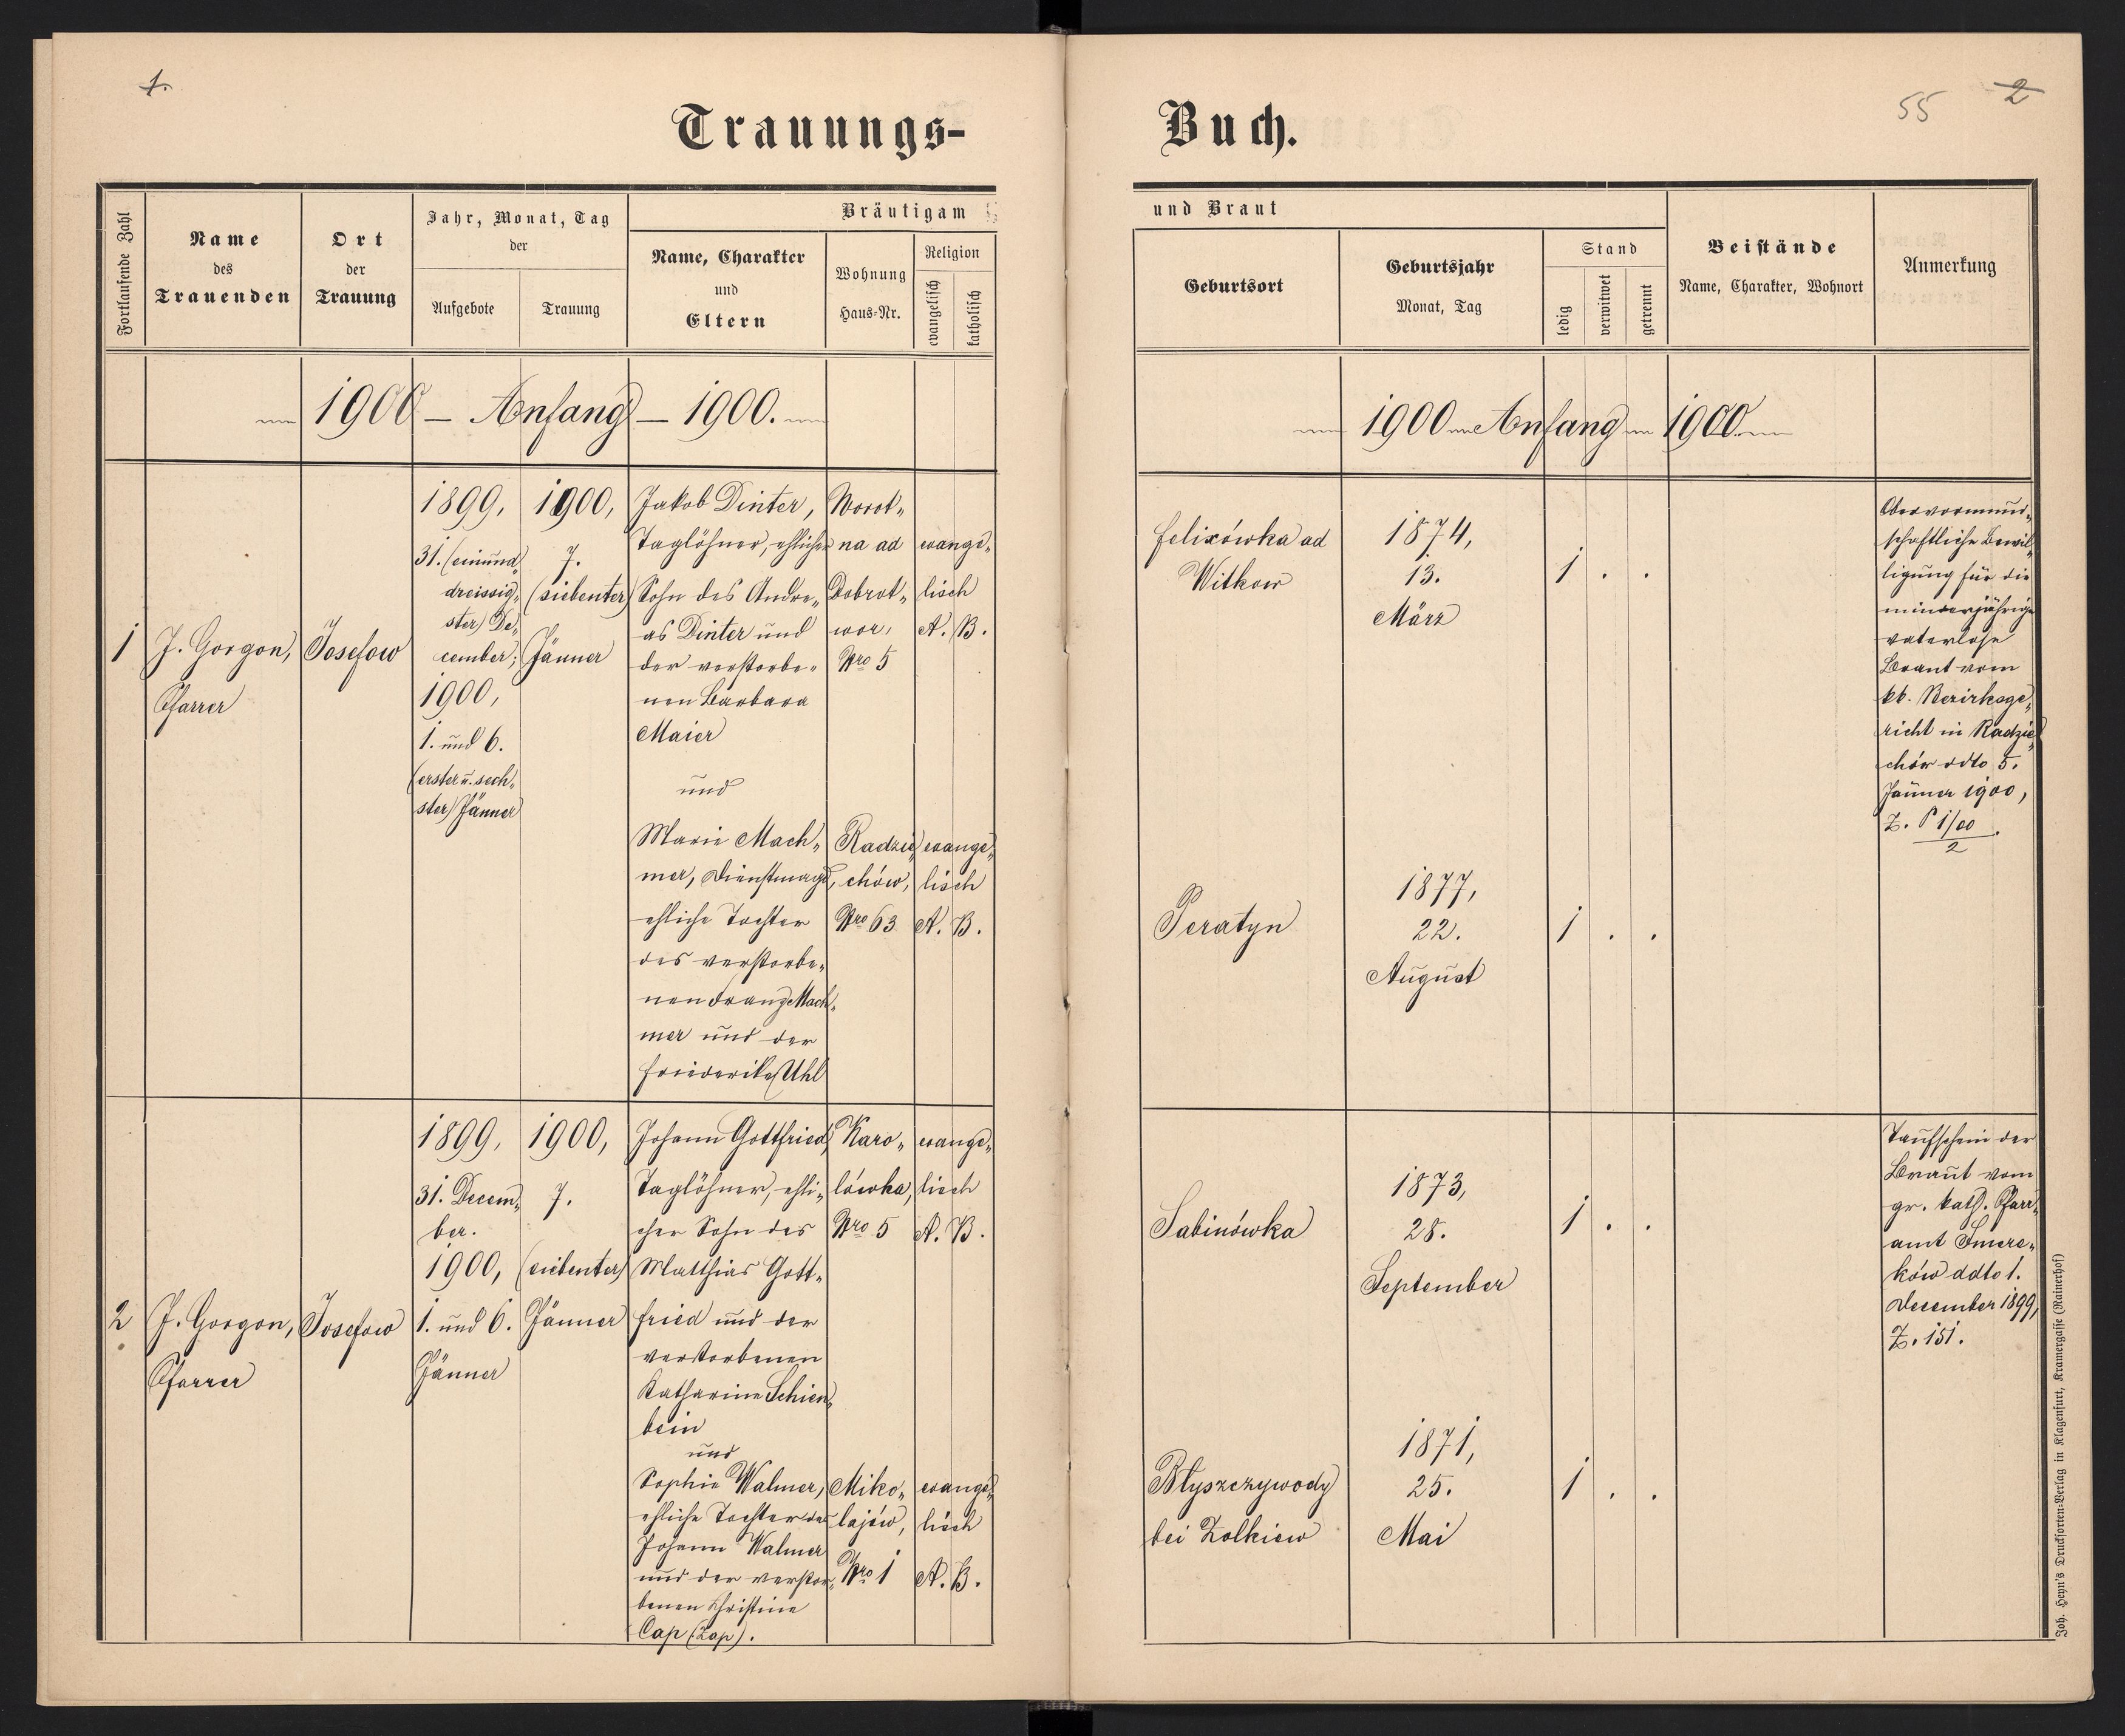 1.
Trauungs-
Fortlaufende Zahl
Name
des
Trauenden
Ort
der
Trauung
Jahr, Monat, Tag
der
Aufgebote
Trauung
Bräutigam
Name, Charakter
und
Eltern
Wohnung
Haus-Nr.
Religion
evangelisch
katholisch
1900 — Anfang — 1900.
1
J. Gorgon,
Pfarrer
Josefow
1899,
31. (einund„
dreissig„
ster) De„
cember;
1900,
1. und 6.
(erster u. sech„
ster) Jänner
1900,
7.
(siebenter)
Jänner
Jakob Dinter,
Taglöhner, ehlicher
Sohn des Andre„
as Dinter und
der verstorbe„
nen Barbara
Maier
und
Marie Mach„
mer, Dienstmagd,
ehliche Tochter
des verstorbe„
nen Franz Mach„
mer und der
Friederike Uhl
Worot„
na ad
Dobrot„
wor,
Nro 5
Radzie„
chów,
Nro 63
evange„
lisch
A. B.
evange„
lisch
A. B.
2
J. Gorgon,
Pfarrer
Josefow
1899,
31. Decem„
ber.
1900,
1. und 6.
Jänner
1900,
7.
(siebenter)
Jänner
Johann Gottfried,
Taglöhner, ehli„
cher Sohn des
Matthias Gott„
fried und der
verstorbenen
Katharine Schien„
bein
und
Sophie Walmer,
ehliche Tochter des
Johann Walmer
und der verstor„
benen Christine
Cap (Zap).
Karo„
lówka,
Nro 5
Miko„
lajów,
Nro 1
evange„
lisch
A. B.
evange„
lisch
A. B.
Buch.
55
2
und Braut
Geburtsort
Geburtsjahr
Monat, Tag
Stand
ledig
verwitwet
getrennt
Beistände
Name, Charakter, Wohnort
Anmerkung
1900 Anfang 1900
Felixówka ad
Witkow
1874,
13.
März
1 . .
Obervormund„
schaftliche Bewil„
ligung für die
minderjährige
vaterlose
Braut vom
kk. Bezirksge„
richt in Radzie„
chów ddto 5.
Jänner 1900,
Z. P 1/00
2
Peratyn
1877,
22.
August
1 . .
Sabinówka
1873,
28.
September
1 . .
Taufschein der
Braut vom
gr. kath. Pfarr„
amt Smere„
ków ddto 1.
December 1899,
Z. 151.
Błyszczywody
bei Zolkiew
1871,
25.
Mai
1 . .
Joh. Heyn's Drucksorten-Verlag in Klagenfurt, Kramergasse (Rainerhof)